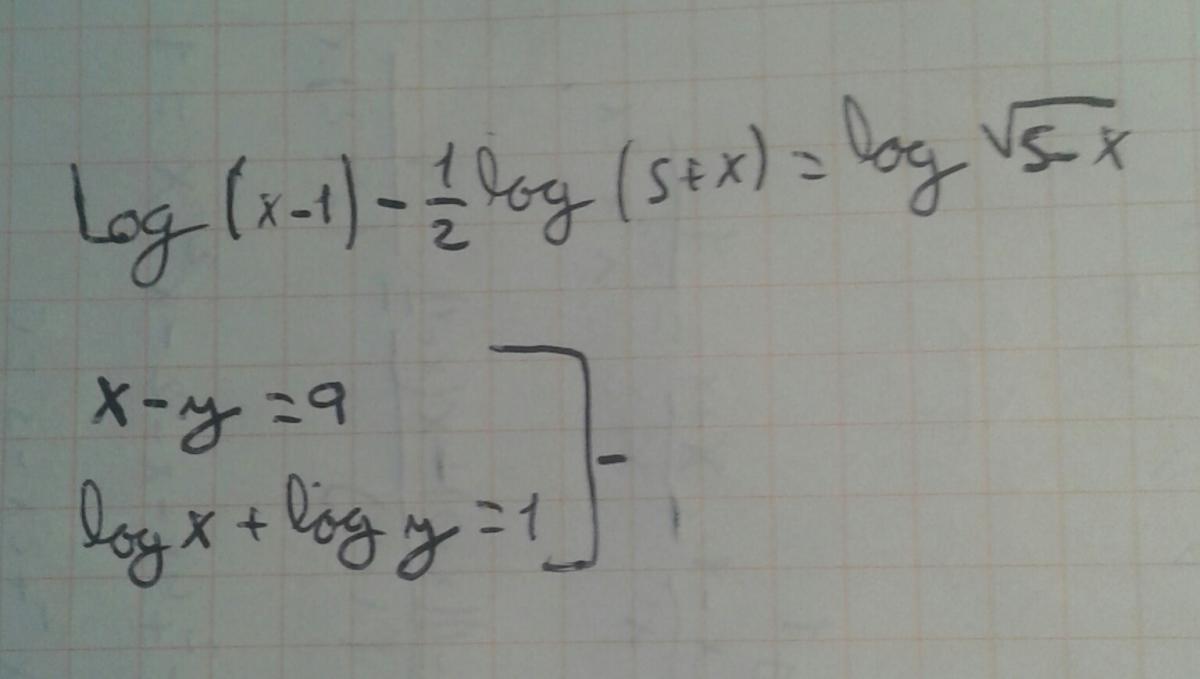 Log (x-1) - 1/2 log (5+x) = log √(5-x)
x-y =9
log x + log y =1 ] -